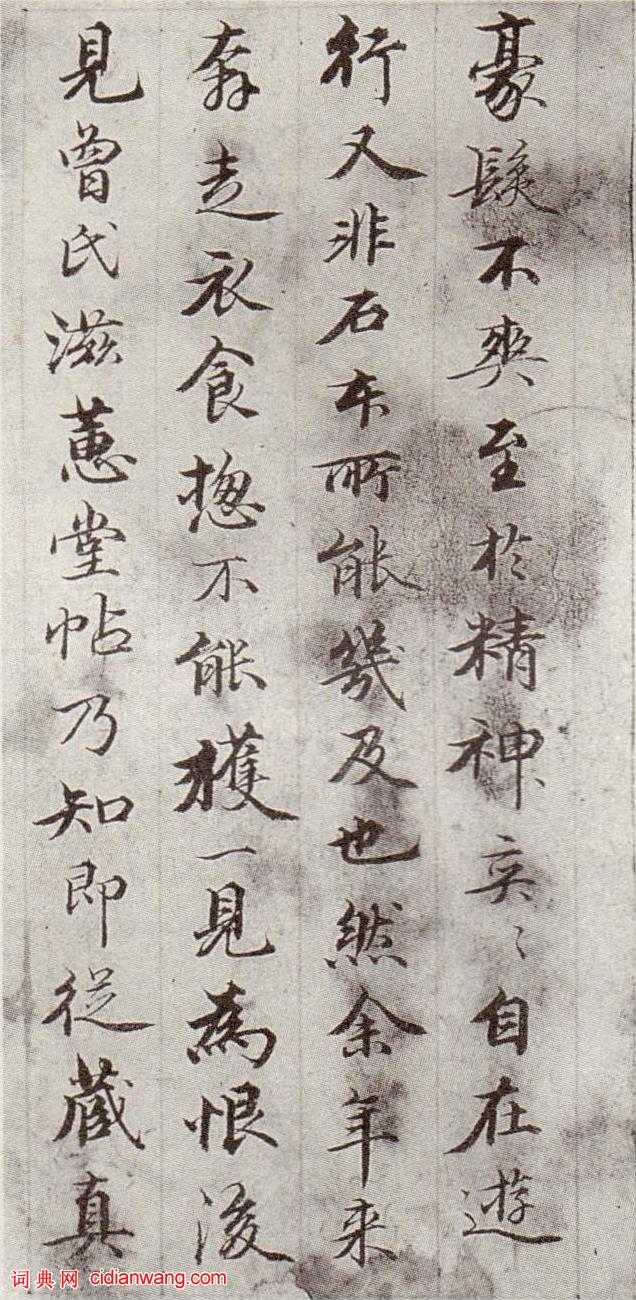 豪髮不爽至於精神奕〻自在遊
行又非石本所能幾及也然余年来
奔走衣食揔不能獲一見為恨後
見曾氏滋蕙堂帖乃知即従蔵真
词典网 cidianwang.com